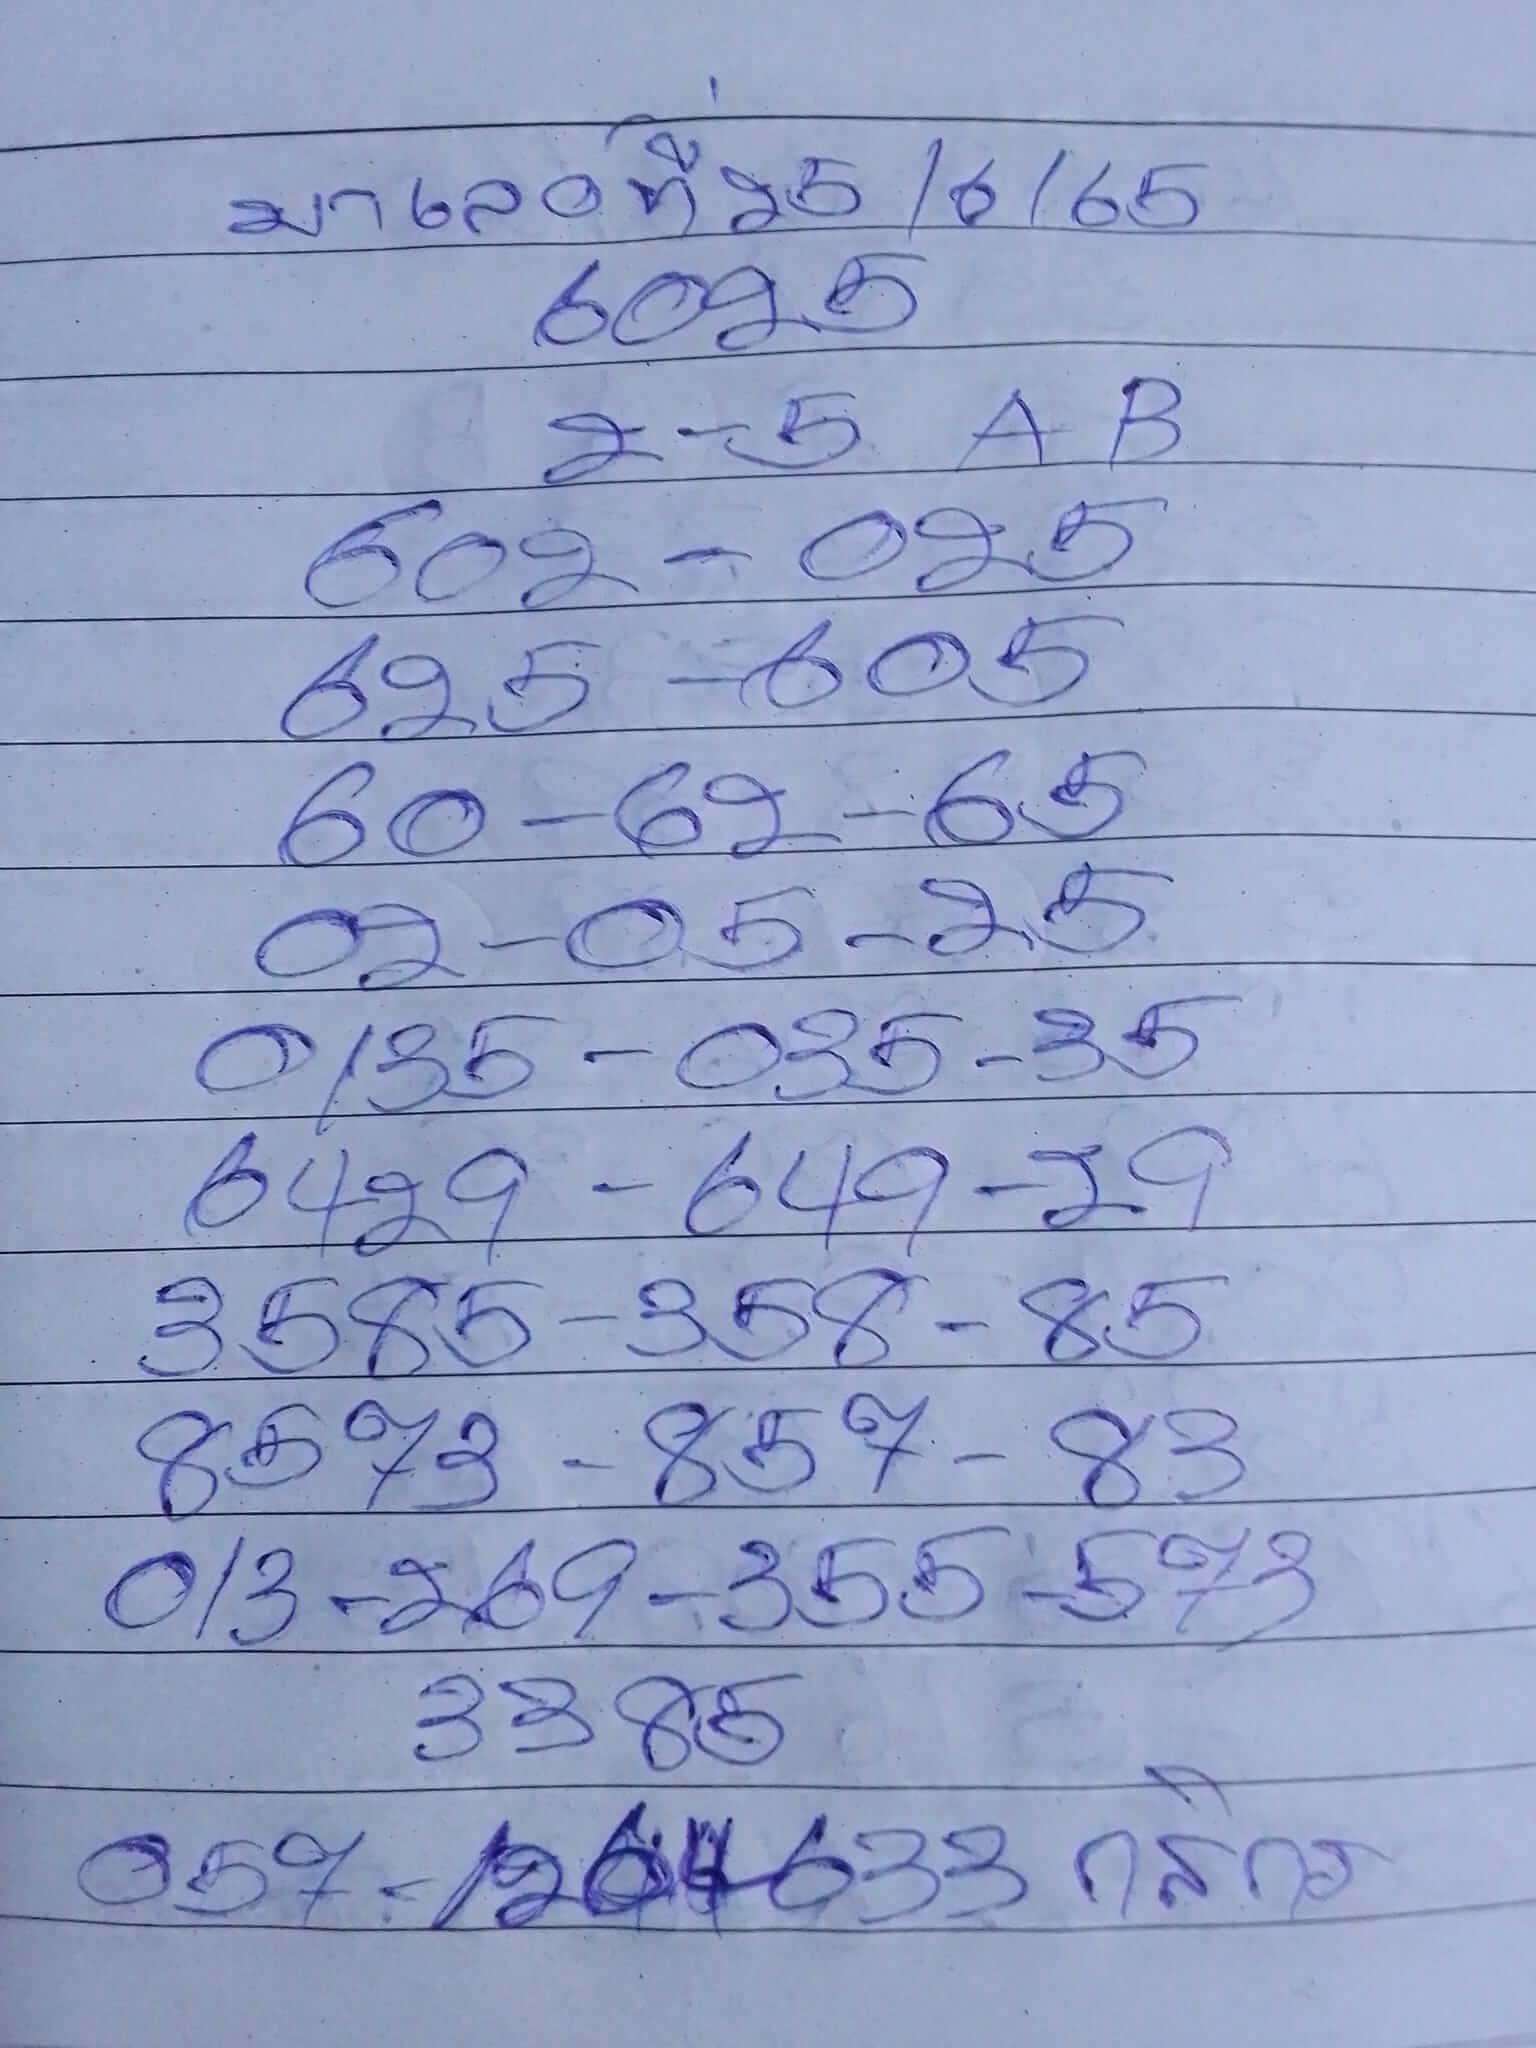 มาเลอที่ 25/6/65
6025
2-5 A B
602-025
625-605
60-62-65
02-05-25
0135-035-35
6429-649-29
3585-358-85
8573-857-83
013-269-355-573
3385
057- 633